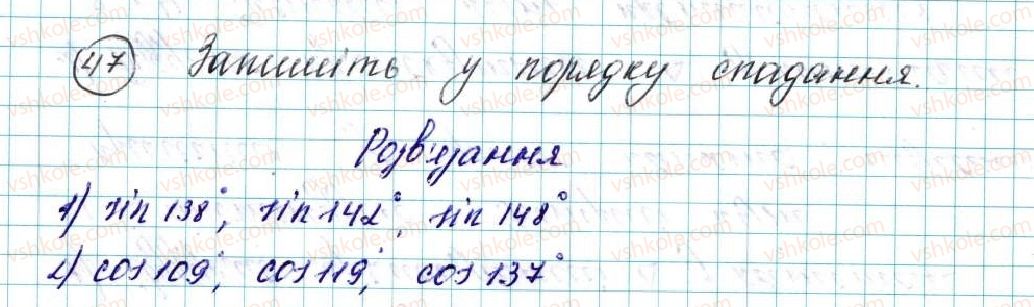 47 Запишіть у порядку спадання.
Розв'язання
1) sin 138°; sin 142°; sin 148°
2) cos 109°; cos 119°; cos 137°
vshkole.com